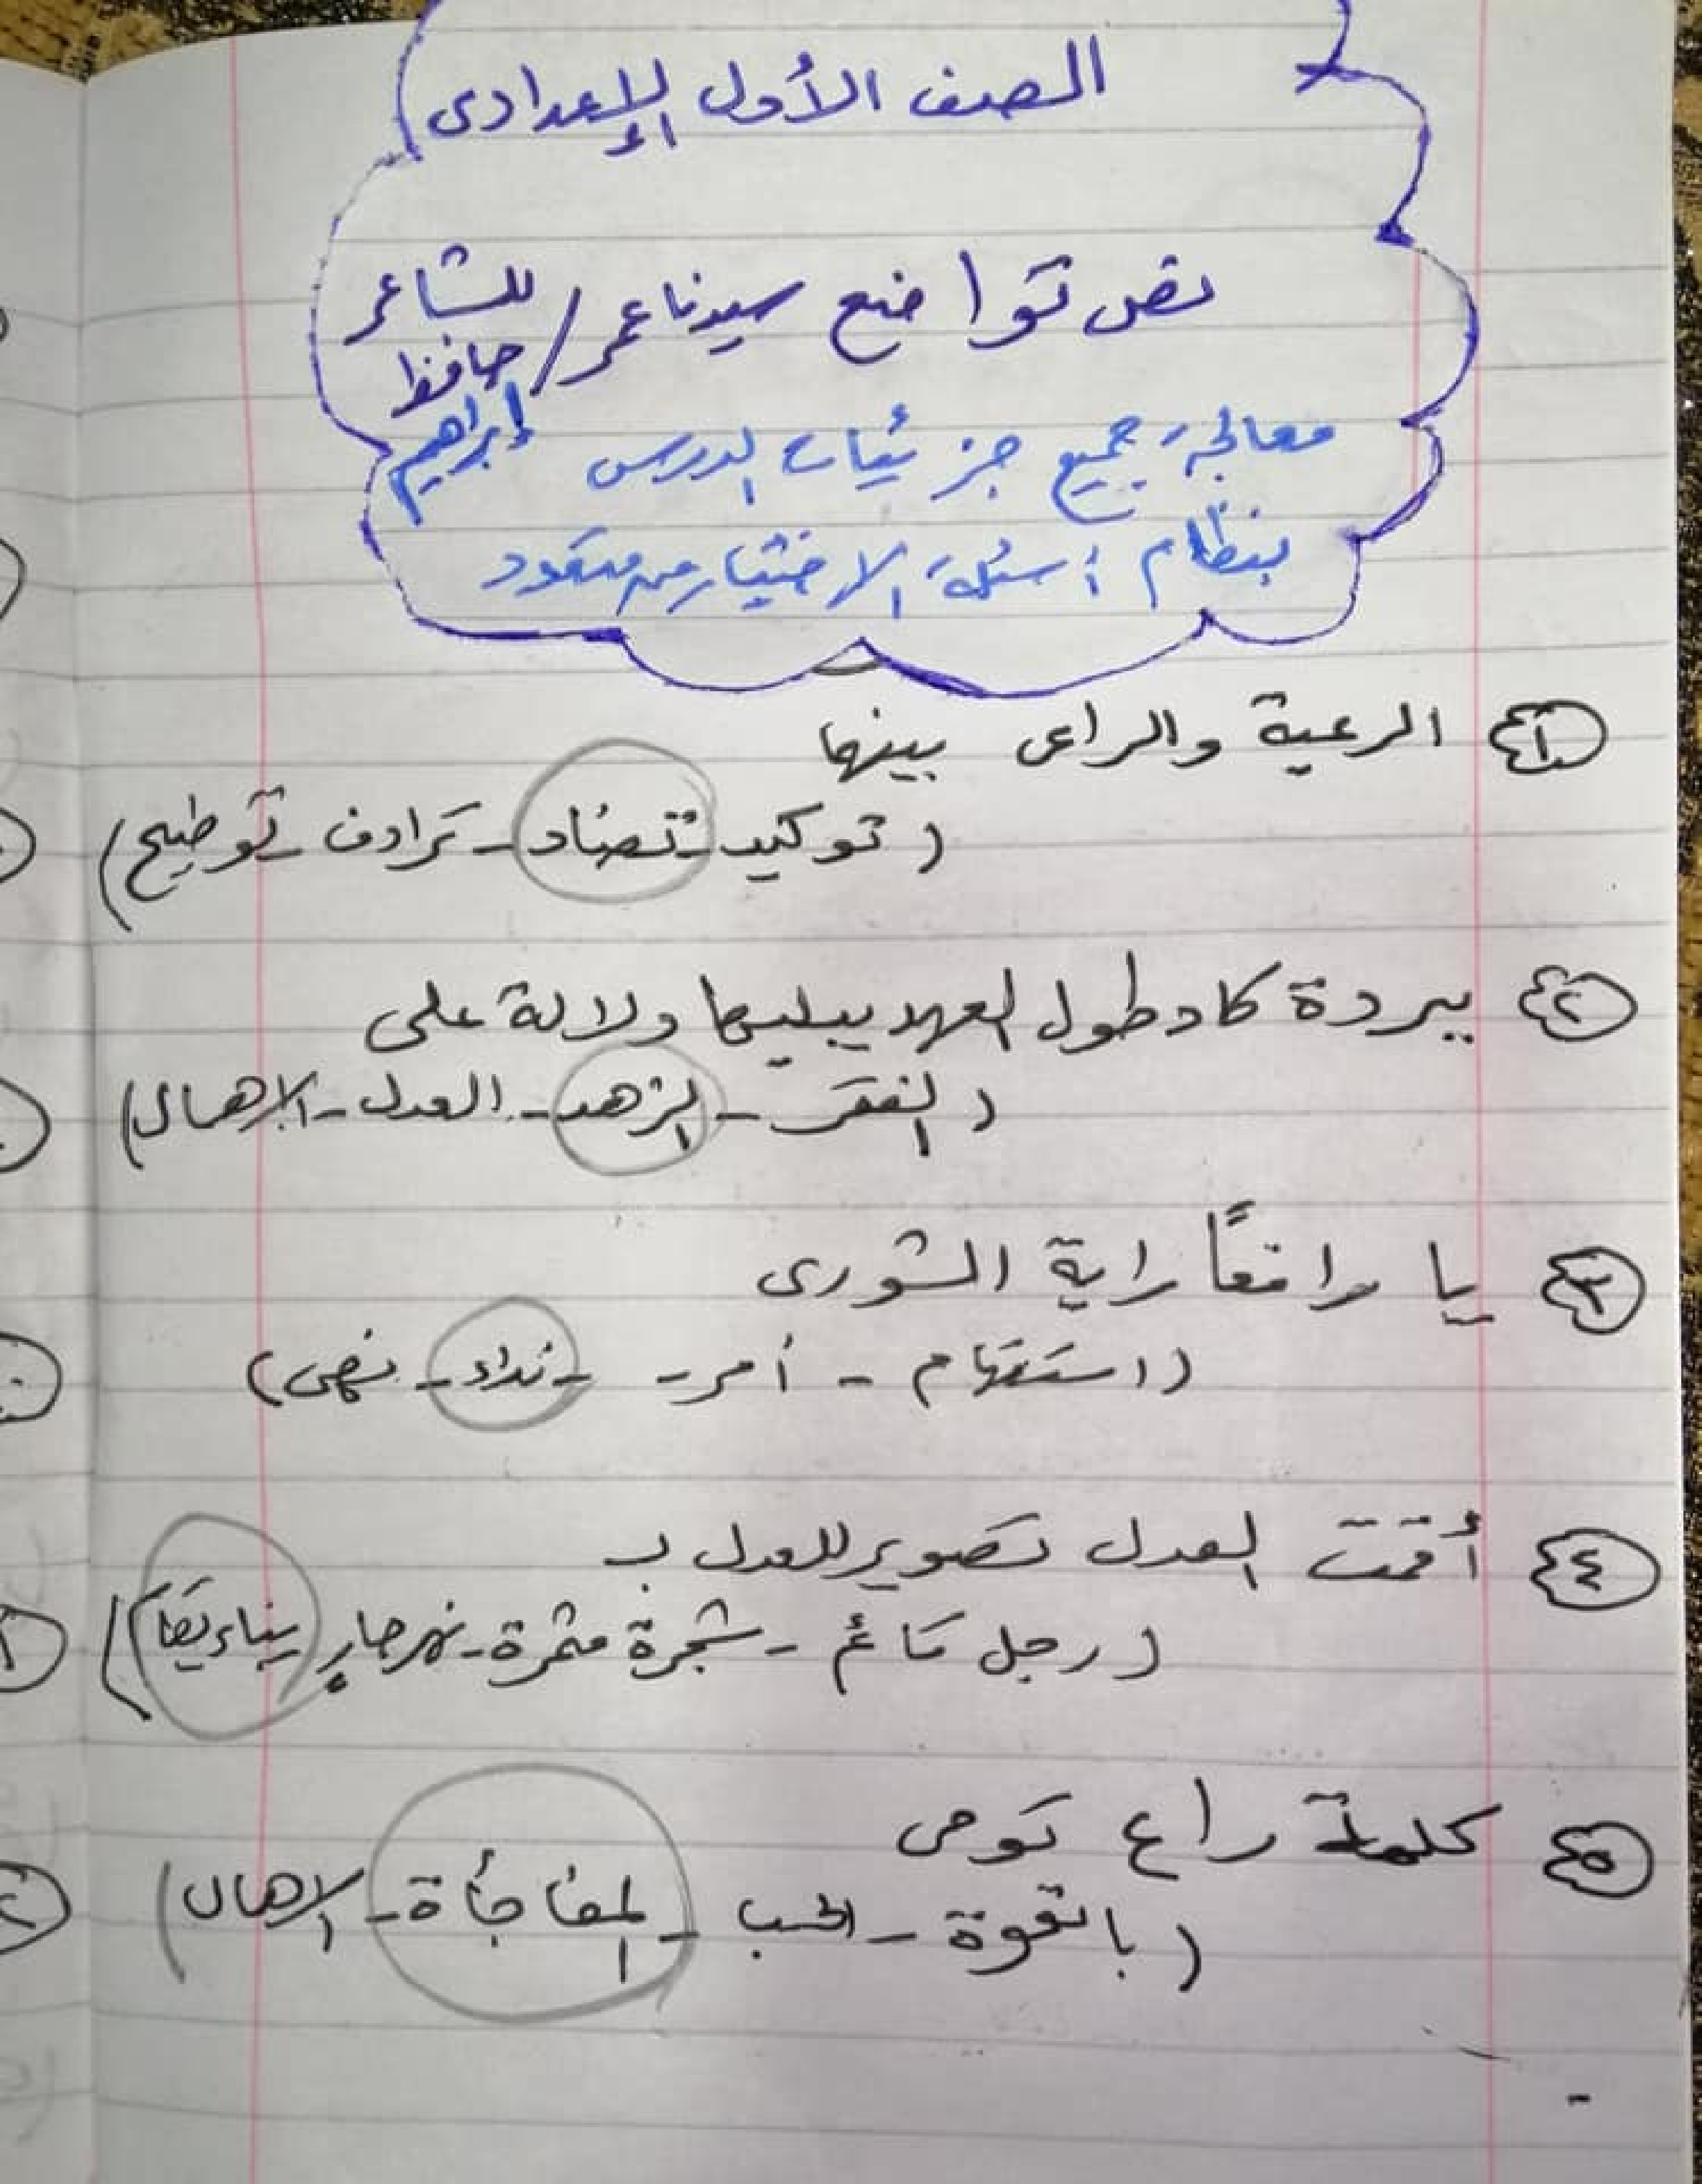 الصف الأول الإعدادى
نص تواضع سيدنا عمر / للشاعر
حافظ
إبراهيم
معالجة جميع جزئيات الدرس
بنظام أسئلة الاختيار من متعدد
١ الرعية والراعى بينهما
(توكيد - تضاد - ترادف - توضيح)
٢ ببردة كاد طول العهد يبليها دلالة على
(الفقر - الزهد - العدل - الإهمال)
٣ يا رافعاً راية الشورى
(استفهام - أمر - نداء - نهى)
٤ أقمت العدل تصوير للعدل ب
(رجل قائم - شجرة مثمرة - نهر جارٍ
٥ كلمة راع توحى
(بالقوة - الحب - المفاجأة - الاهمال)